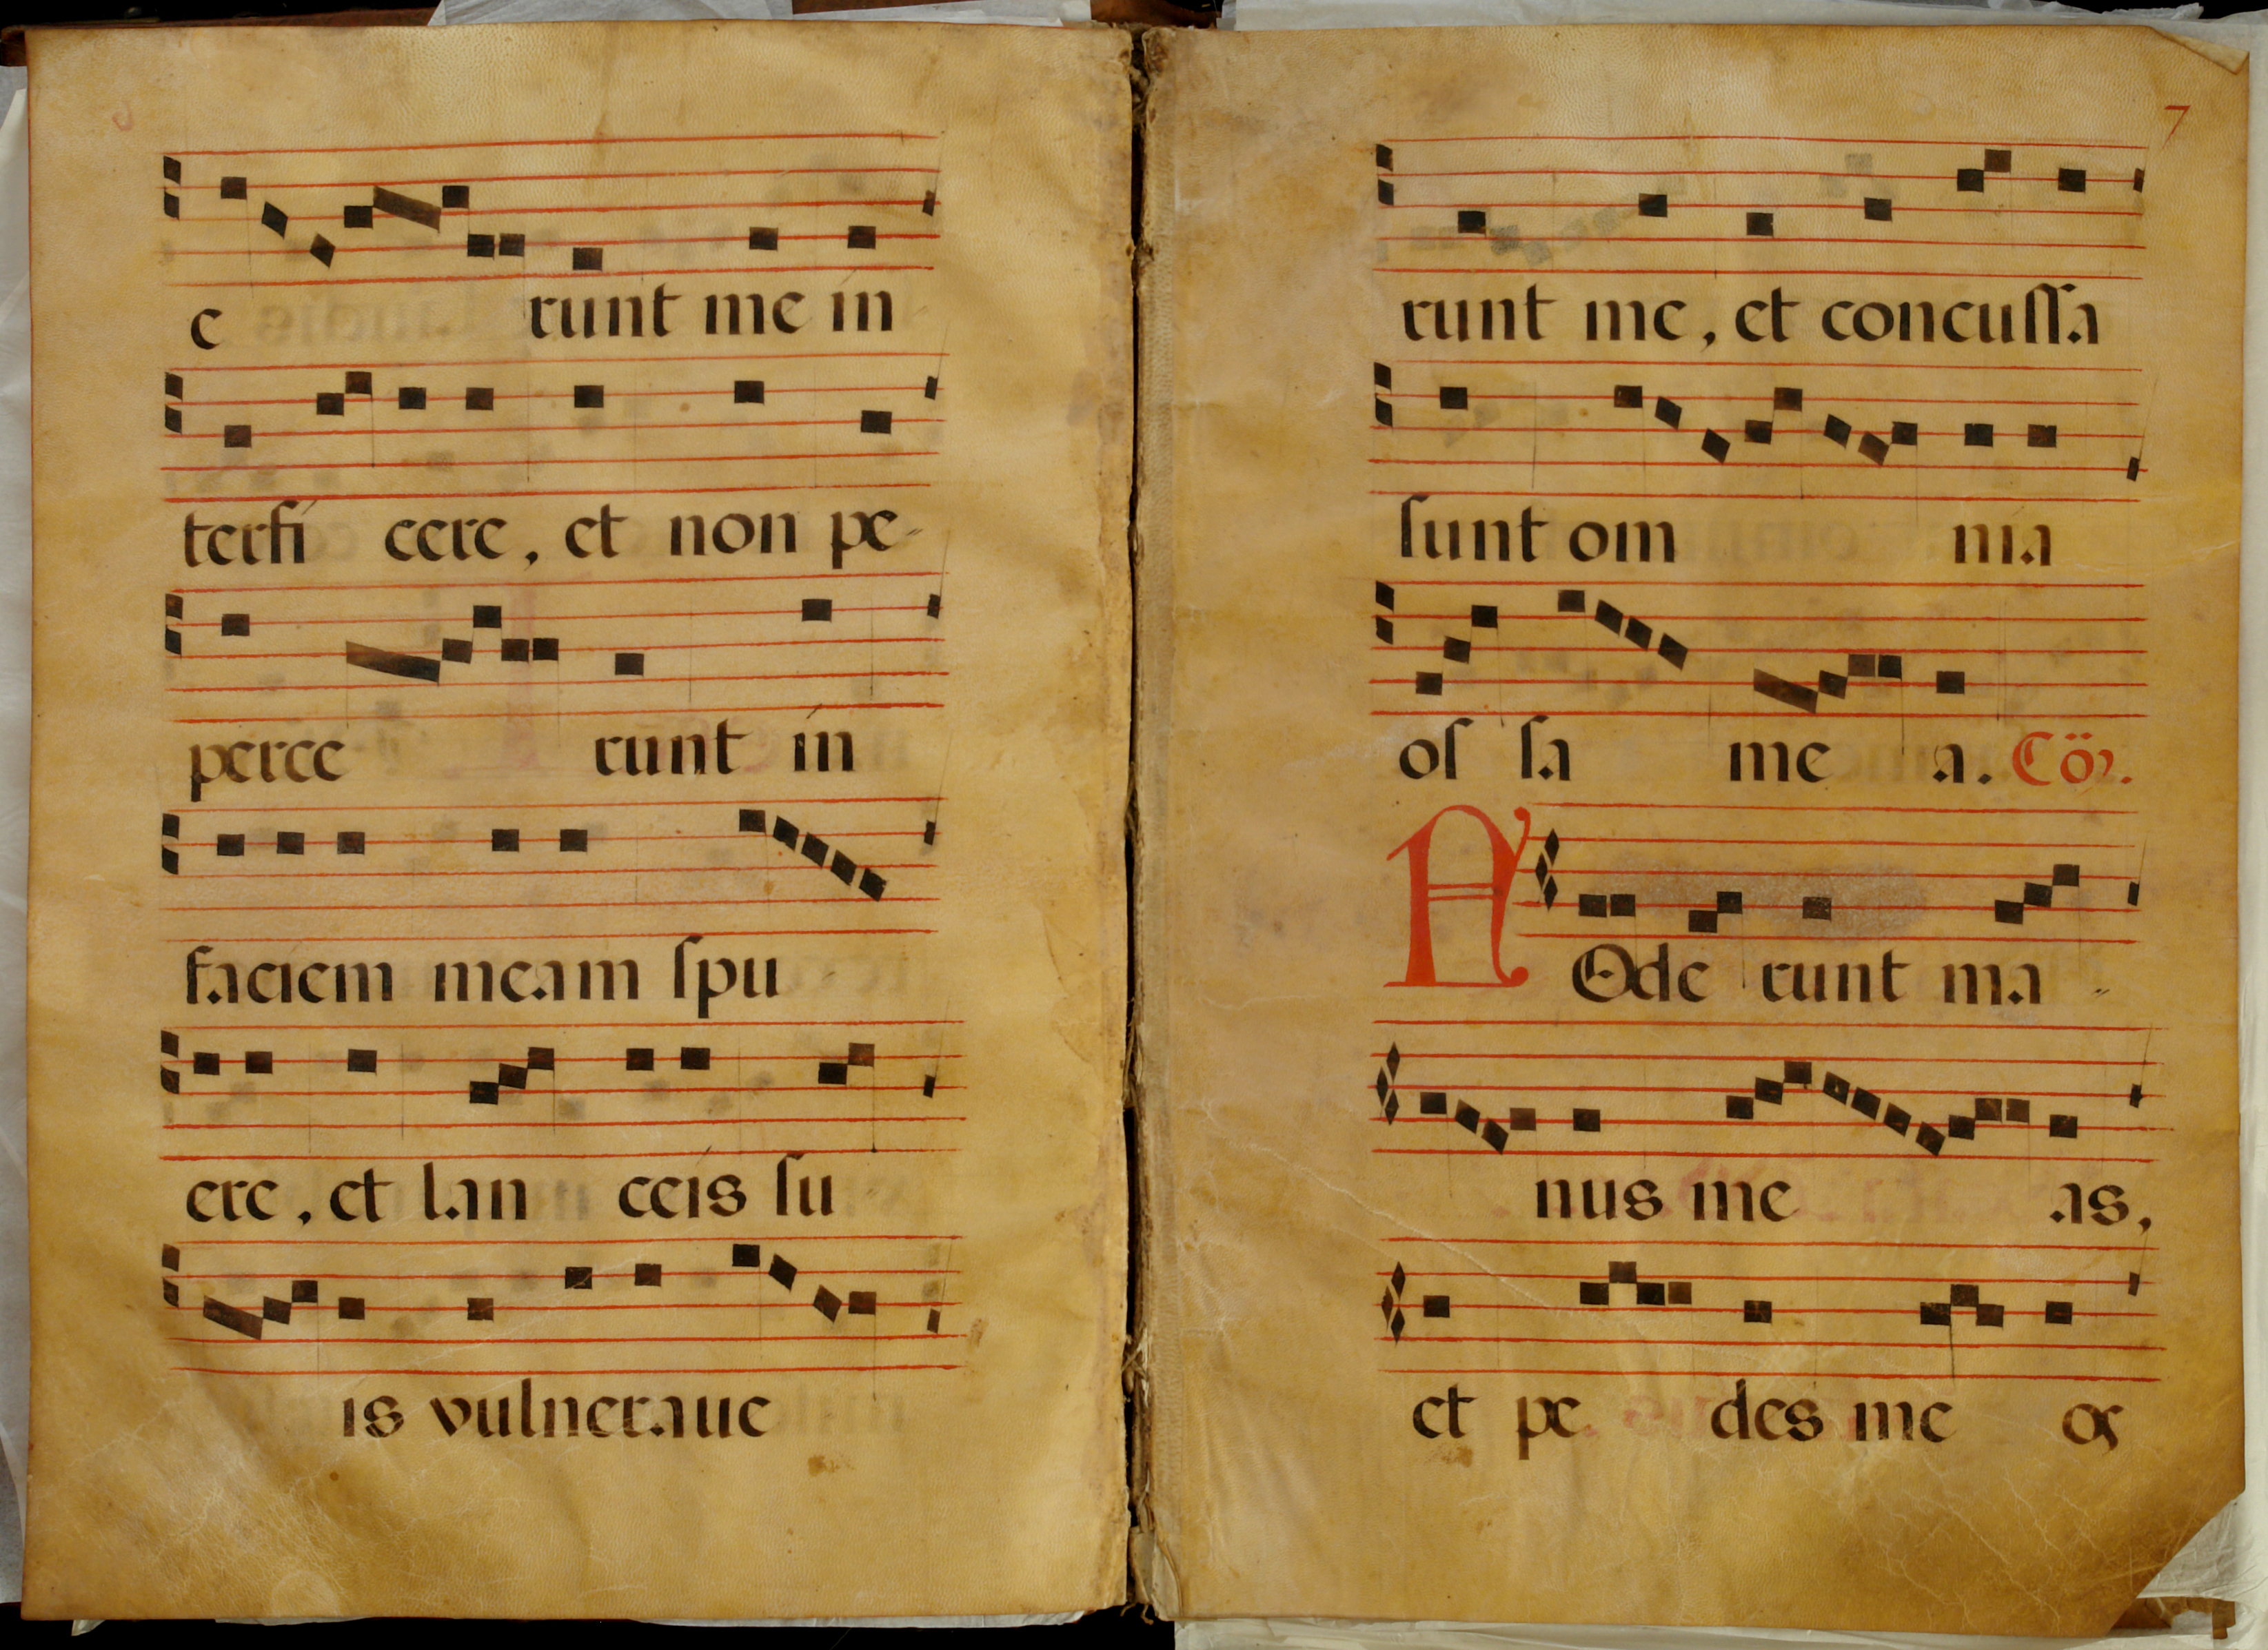 e runt me in
terfi cere, et non pe-
perce runt in
faciem meam ſpu
ere, et lan ceis ſu
is vulneraue
7
runt me, et concuſſa
ſunt om nia
oſ ſa me a. Cör.
F Ode runt ma -
nus me as,
et pe des me os